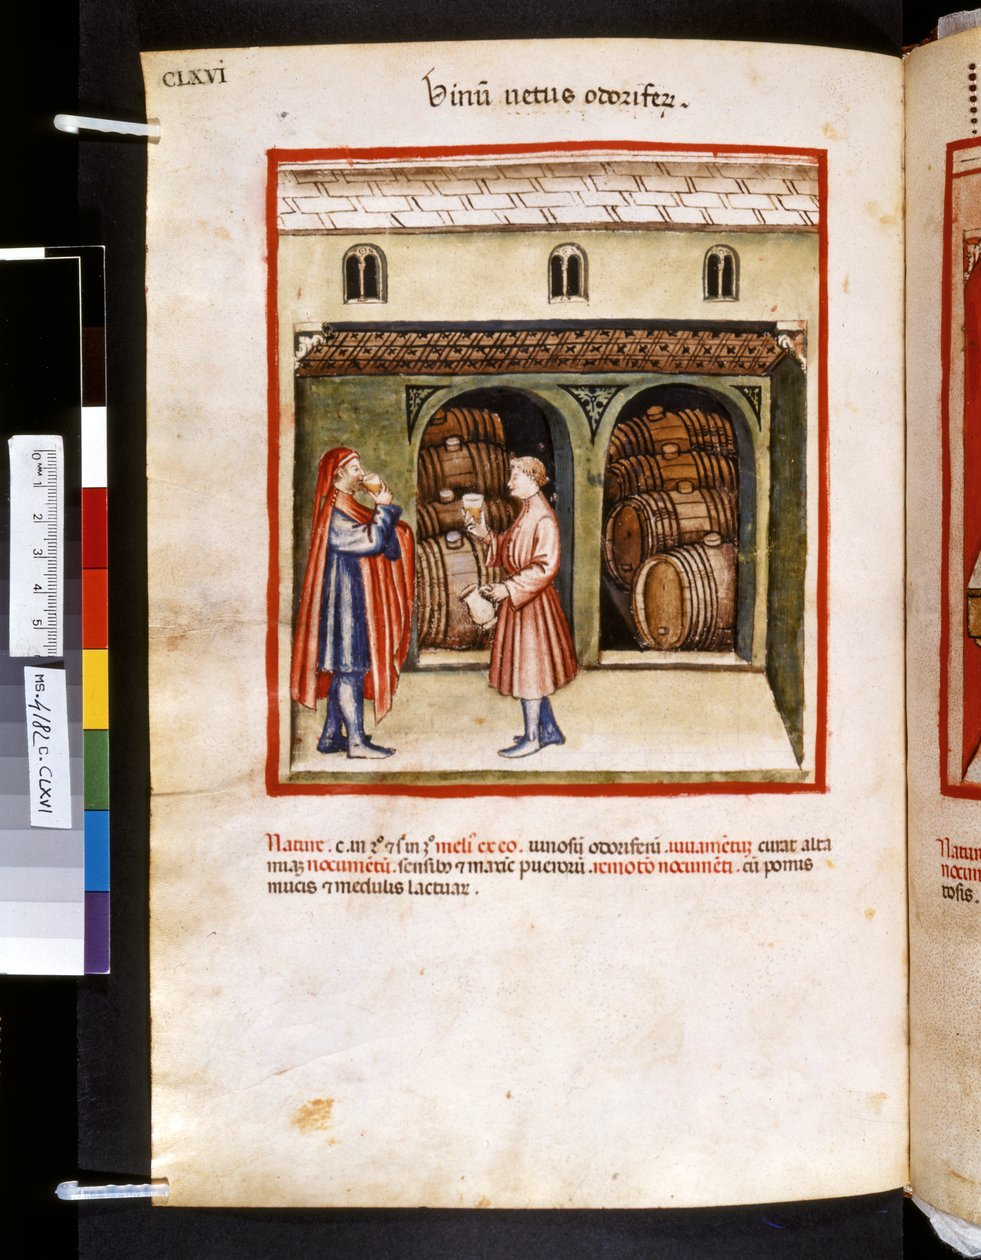 CLXVI
Vinū uetus odorifeꝝ.
Nature. c. in 2º ⁊ s̄ in 2º meli᷒ ex eo. uinosū odoriferū. iuuamētuȝ curat alta
maȝ nocumētū. sensibꝰ ⁊ maxīe puerorū. remotō nocumēti. cū pomis
mucis ⁊ medulis lactuaꝝ.
0 MM 1 2 3 4 5
MS. 4182 C. CLXVI
Natur
nocum
tosis.